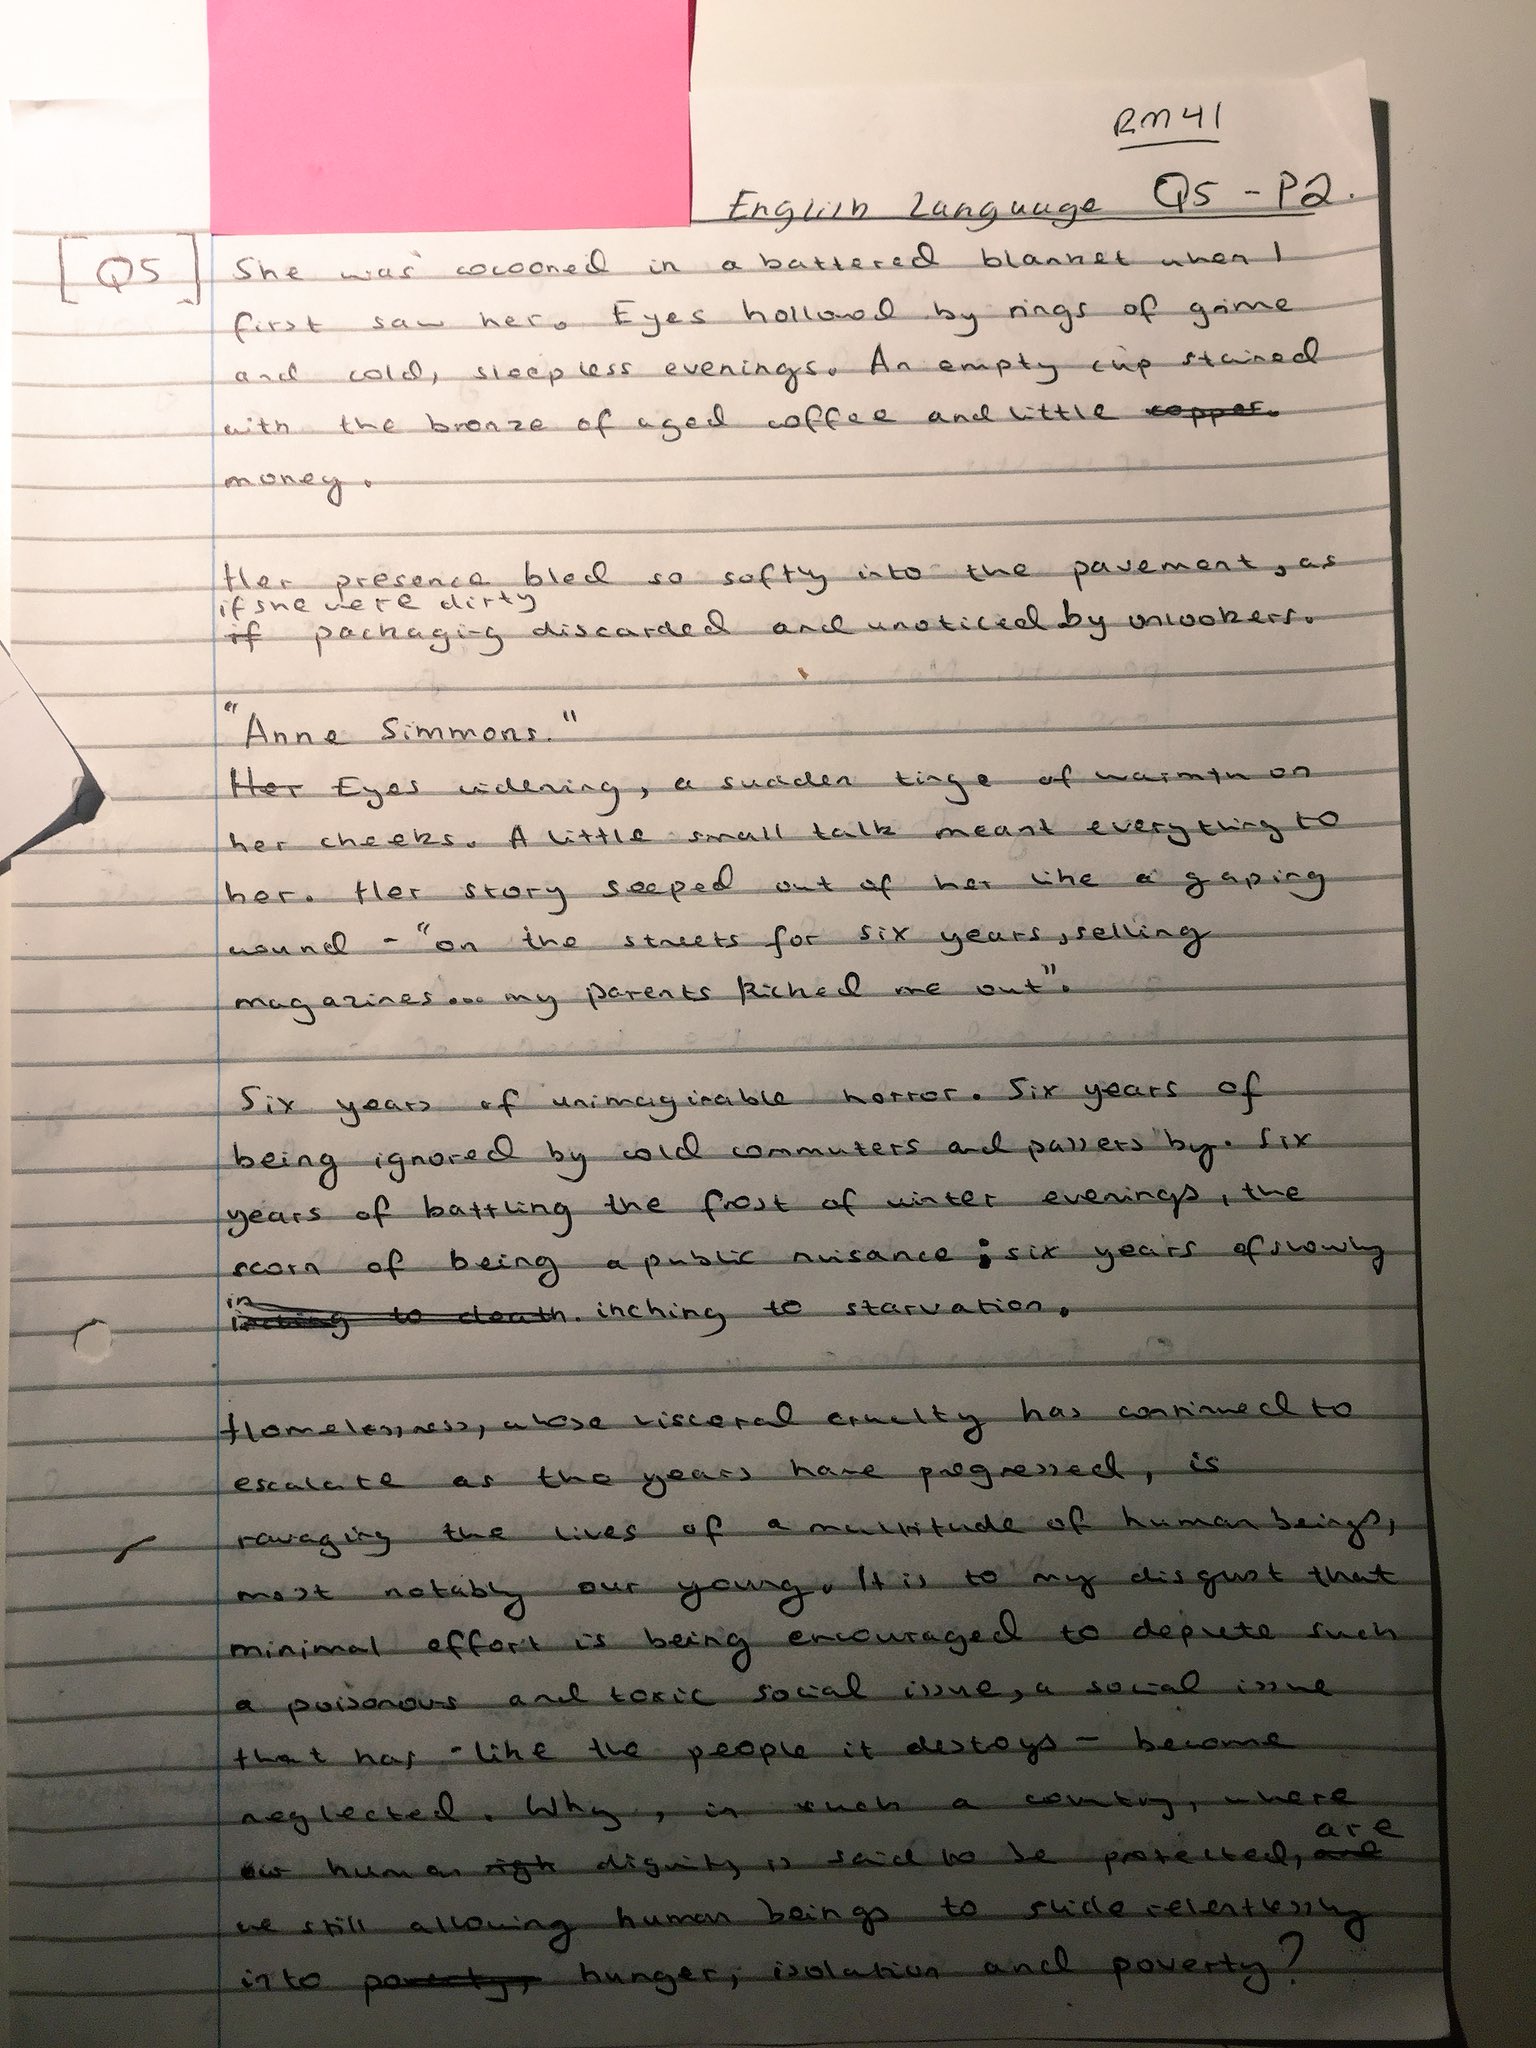 RM41
English Language Q5 - P2.
[Q5] She was cocooned in a battered blanket when I
first saw her. Eyes hollowed by rings of grime
and cold, sleepless evenings. An empty cup stained
with the bronze of aged coffee and little copper.
money.
Her presence bled so softly into the pavement, as
if she were dirty
if packaging discarded and unoticed by onlookers.
"Anne Simmons."
Her Eyes widening, a sudden tinge of warmth on
her cheeks. A little small talk meant everything to
her. Her story seeped out of her like a gaping
wound - "on the streets for six years, selling
magazines... my parents kicked me out".
Six years of unimaginable horror. Six years of
being ignored by cold commuters and passers by. Six
years of battling the frost of winter evenings, the
scorn of being a public nuisance; six years of slowly
in
inching to death. inching to starvation.
Homelessness, whose visceral cruelty has continued to
escalate as the years have progressed, is
ravaging the lives of a multitude of human beings,
most notably our young. It is to my disgust that
minimal effort is being encouraged to deplete such
a poisonous and toxic social issue, a social issue
that has - like the people it destoys - become
neglected. Why, in such a country, where
are
our human righ dignity is said to be protected, and
we still allowing human beings to slide relentlessly
into poverty, hunger, isolation and poverty?